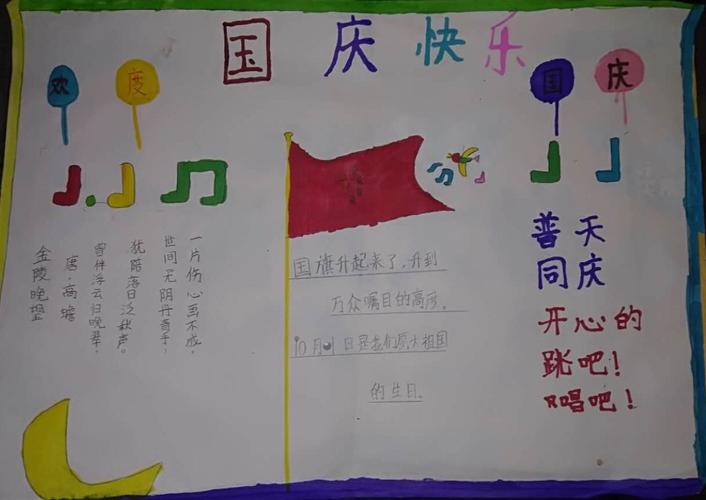 国庆快乐
欢度国庆
金陵晚望
唐·高蟾
曾伴浮云归晚翠,
犹陪落日泛秋声。
世间无限丹青手,
一片伤心画不成。
国旗升起来了,升到
万众嘱目的高度。
10月1日是我们原大祖国
的生日。
普天
同庆
开心的
跳吧!
唱吧!